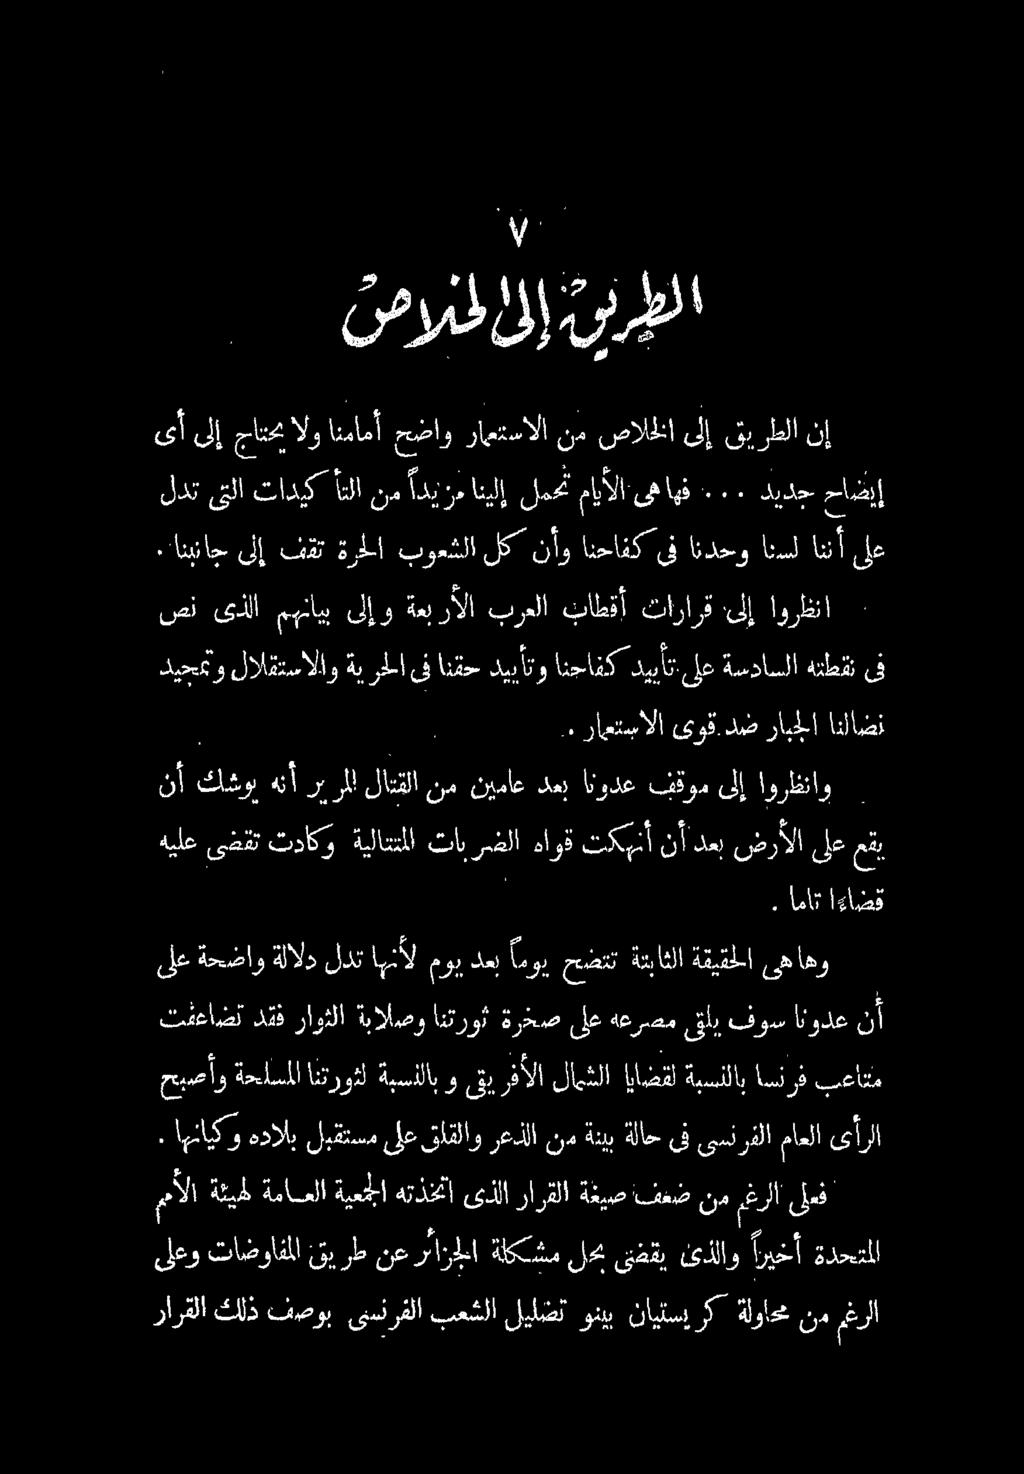 ٧
الطريق إلى الخلاص
إن الطريق إلى الخلاص من الاستعمار واضح أمامنا ولا يحتاج إلى أى
إيضاح جديد ... فها هى الأيام تحمل إلينا مزيداً من التأكيدات التى تدل
على أننا لسنا وحدنا فى كفاحنا وأن كل الشعوب الحرة تقف إلى جانبنا .
انظروا إلى قرارات أقطاب العرب الأربعة وإلى بيانهم الذى نص
فى نقطته السادسة على تأييد كفاحنا وتأييد حقنا فى الحرية والاستقلال وتمجيد
نضالنا الجبار ضد قوى الاستعمار .
وانظروا إلى موقف عدونا بعد عامين من القتال المرير أنه يوشك أن
يقع على الأرض بعد أن أنهكت قواه الضربات المتتالية وكادت تقضى عليه
قضاءًا تاما .
وها هى الحقيقة الثابتة تتضح يوماً بعد يوم لأنها تدل دلالة واضحة على
أن عدونا سوف يلقى مصرعه على صخرة ثورتنا وصلابة الثوار فقد تضاعفت
متاعب فرنسا بالنسبة لقضايا الشمال الأفريقى وبالنسبة لثورتنا المسلحة وأصبح
الرأى العام الفرنسى فى حالة بينة من الذعر والقلق على مستقبل بلاده وكيانها .
فعلى الرغم من ضعف صيغة القرار الذى اتخذته الجمعية العامة لهيئة الأمم
المتحدة أخيراً والذى يقضى بحل مشكلة الجزائر عن طريق المفاوضات وعلى
الرغم من محاولة كريستيان بينو تضليل الشعب الفرنسى بوصف ذلك القرار